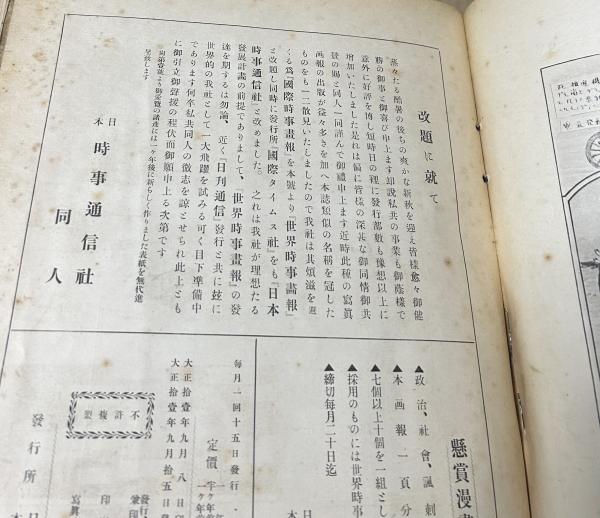 改題に就て
蒸々たる酷暑の後ちの爽かな新秋を迎え皆樣愈々御健
勝の御事と御喜び申上ます却說私共の事業も御蔭樣で
意外に好評を博し短時日の裡に發行部數も豫想以上に
增加いたしました是れは偏に皆樣の深甚な御同情御共
賛の賜と同人一同謹んで御禮申上ます近時此種の寫眞
畫報の出版が益々多きを加へ本誌類似の名稱を冠した
ものをも一二散見いたしましたので我社は其煩滋を避
くる爲『國際時事畫報』を本號より『世界時事畵報』
と改題し同時に發行所『國際タイムス社』をも『日本
時事通信社』と改めました。之れは我社が理想たる
發展計畫の前提でありまして、『世界時事畫報』の發
達を期するは勿論、近く『日刋通信』發行と共に玆に
世界的の我社として一大飛躍を試みる可く目下準備中
であります何卒私共同人の徴志を諒とせられ此上とも
に御引立御聲援の程伏而御願申上る次第です
尙第壹號より御愛覽の諸彦には一ケ年後に新らしく作りました表紙を無代進
呈致します
日本 時事通信社
同人
懸賞漫
▲政治、社會、諷刺
▲本画報一頁分
▲七個以上十個を一組とし
▲採用のものには世界時事
▲締切每月二十日迄
每月一回十五日發行
定價
大正拾壹年九月八日印
大正拾壹年九月拾五日發
不許複製
發行
兼印
印
寫眞
發行所